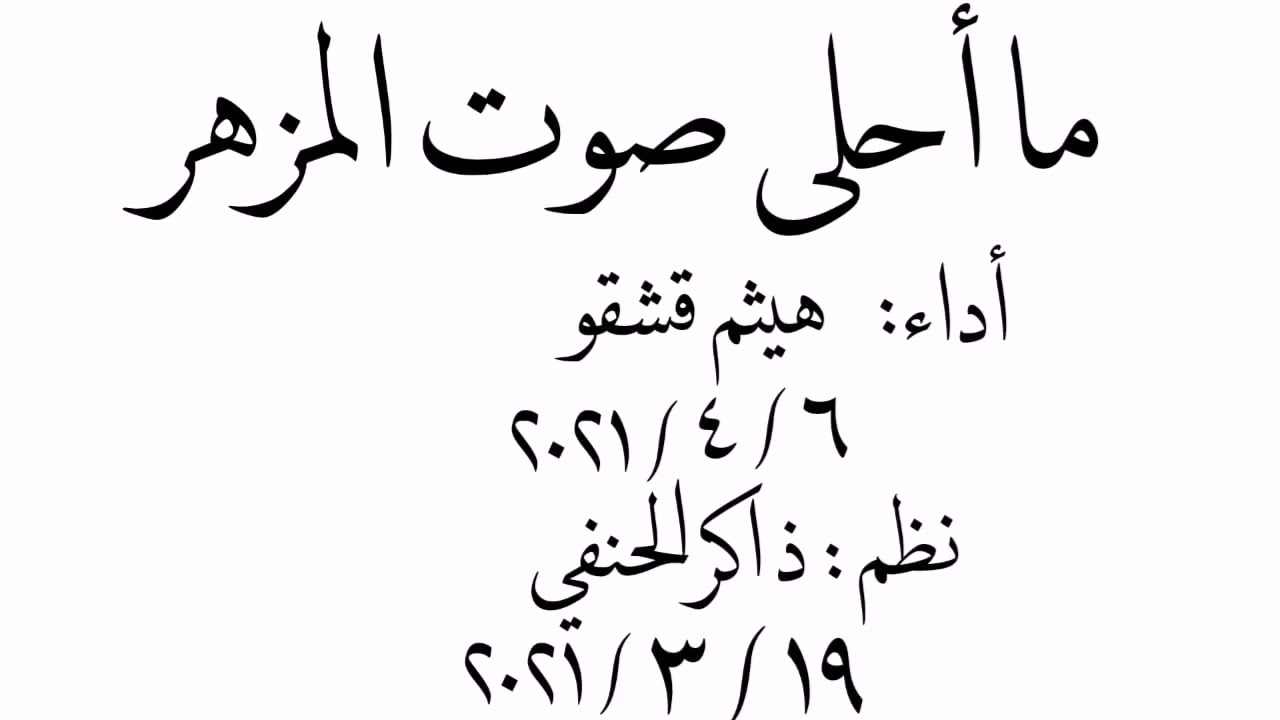 ما أحلى صوت المزهر
أداء: هيثم قشقو
٦ / ٤ / ٢٠٢١
نظم : ذاكر الحنفي
١٩ / ٣ / ٢٠٢١